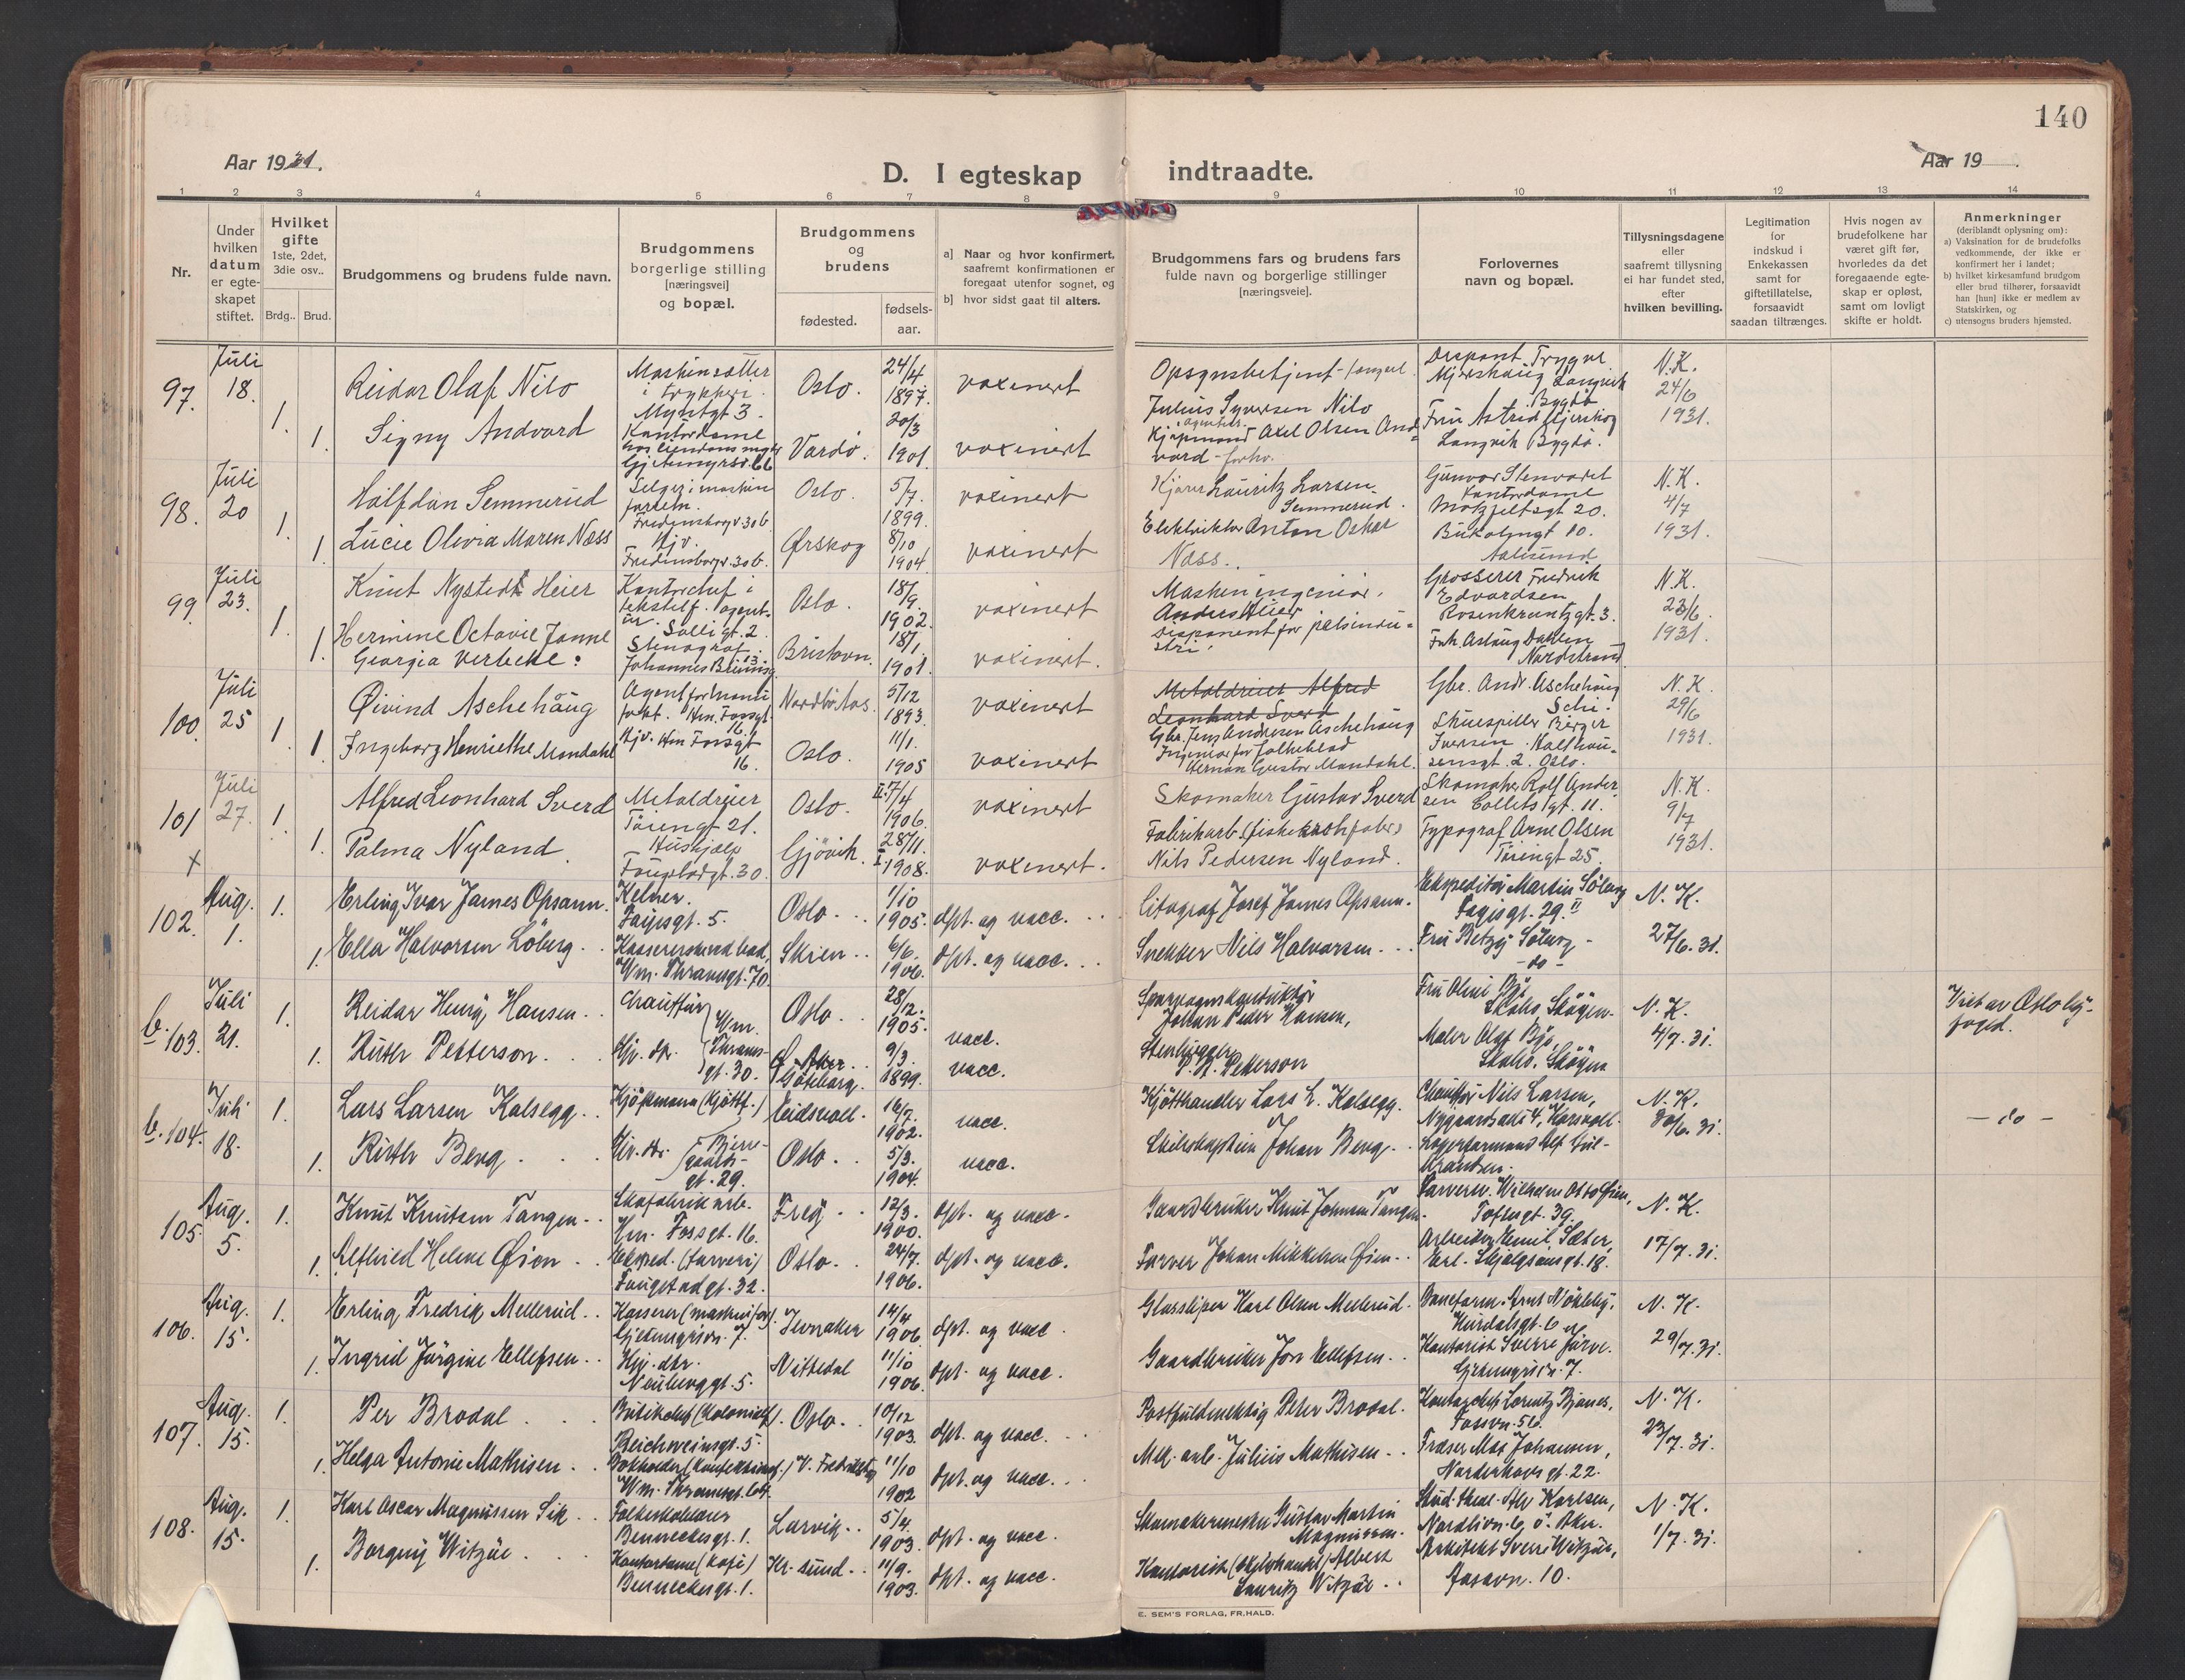 140
Aar 1931.
D. I egteskap indtraadte.
Aar 19
1 2 3 4 5 6 7 8 9 10 11 12 13 14
Nr.
Under hvilken datum er egteskapet stiftet.
Hvilket gifte 1ste, 2det, 3die osv..
Brdg.. Brud.
Brudgommens og brudens fulde navn.
Brudgommens borgerlige stilling [næringsvei] og bopæl.
Brudgommens og brudens
fødested.
fødselsaar.
a] Naar og hvor konfirmert, saafremt konfirmationen er foregaat utenfor sognet, og
b] hvor sidst gaat til alters.
Brudgommens fars og brudens fars fulde navn og borgerlige stillinger [næringsveie].
Forlovernes navn og bopæl.
Tillysningsdagene eller saafremt tillysning ei har fundet sted, efter hvilken bevilling.
Legitimation for indskud i Enkekassen samt for giftetillatelse, forsaavidt saadan tiltrænges.
Hvis nogen av brudefolkene har været gift før, hvorledes da det foregaaende egteskap er opløst, samt om lovligt skifte er holdt.
Anmerkninger (deriblandt oplysning om):
a) Vaksination for de brudefolks vedkommende, der ikke er konfirmert her i landet;
b) hvilket kirkesamfund brudgom eller brud tilhører, forsaavidt han [hun] ikke er medlem av Statskirken, og
c) utensogns bruders hjemsted.
97. Juli 18. 1. Reidar Olaf Nilo Maskinsætter i trykkeri Myntgt 3. Oslo. 24/4 1897. vaxinert Opsynsbetjent Julius Syversen Nilo N.K. 24/6 1931.
1. Signy Andvord Kontordame Vardö. 20/3 1901. vaxinert Kjøpmand Axel Olsen Andvord Fru Astrid Langvik Bygdö.
98. Juli 20 1. Halfdan Semmerud Selger i maskin Fredensborgv. 30b. Oslo. 5/7. 1899. vaxinert Lauritz Larsen Semmerud. Gunvor Stenvadet Kontordame Motzfeltsgt 20. N.K. 4/7 1931.
1. Lucie Olivia Maren Næss Hjv. Fredensborgv. 30b. Ørskog 8/10 1904. vaxinert Anton Oskar Næss. Aalesund
99. Juli 23. 1. Knut Nystedt Heier Kontorchef i Solligt. 2. Oslo. 18/9. 1902. vaxinert Maskiningeniør. Anders Heier Grosserer Fredrik Edvardsen Rosenkrantzgt. 3. N.K. 23/6. 1931.
1. Hermine Octavie Janne Georgia Verbeke. Stenograf Johannes Brunsg. 18/1 1901. vaxinert. Disponent for pelsindustri. Frk. Aslaug Dahlen Nordstrand.
100. Juli 25 1. Øivind Aschehaug Agent Hm. Fossgt. 16. 5/12 1893. vaxinert Metaldreier Alfred Leonhard Sverd Gbr. Jens Andresen Aschehaug Gbr. Andr. Aschehaug Ski. N.K. 29/6 1931.
1. Ingeborg Henriette Mandahl Hjv. Hm Fossgt 16. Oslo. 11/1. 1905 vaxinert Herman Gustav Mandahl. Skuespiller Birger Iversen
101 + Juli 27. 1. Alfred Leonhard Sverd Metaldreier Töiengt 21. Oslo. 17/4 1906. vaxinert Skomaker Gustav Sverd Skomaker Rolf Andersen Colletsgt. 11. N.K. 9/7 1931.
1. Palma Nyland. Hushjælp Fougstadgt. 30. Gjøvik. 28/11. 1908. vaxinert. Fabrikarb. Nils Pedersen Nyland. Typograf Arne Olsen Töiengt 25.
102. Aug. 1. 1. Erling Ivar James Opsann. Kelner. Fayesgt. 5. Oslo. 1/10 1905. dpt. og vacc. Litograf Josef James Opsann. Ekspeditør Martin Löberg Fagisgt. 29. II N.K. 27/6. 31.
1. Ella Halvorsen Löberg. Wm. Thranesgt. 70. Skien. 6/6. 1906. dpt. og vacc. Snekker Nils Halvorsen. Fru Betzy Löberg - do -
b. 103. Juli 21. 1. Reidar Henry Hansen. Chauffør Oslo. 28/12. 1905. vacc. Sporvognskonduktör Johan Peder Hansen, Fru Olini Bjö N.K. 4/7. 31. Viet av Oslo byfoged.
1. Ruth Petterson. Hjv. dr. Wm. Thranesgt. 30. Göteborg. 9/3. 1899. vacc. Stenhugger Petterson Maler Olaf Bjö,
b. 104. Juli 18. 1. Lars Larsen Kalsegg. Kjöpmann (Kjøttf.) Eidsvoll. 16/7. 1902. vacc. Kjötthandler Lars L. Kalsegg. Chauffør Nils Larsen, N.K. 30/6. 31. - do -
1. Ruth Berg. Hjv. dr. Bjerregaardsgt. 29. Oslo. 5/3. 1904. vacc. Johan Berg.
105. Aug. 5. 1. Knut Knutsen Tangen. Skofabrikarb. Hm. Fossgt. 16. Frey 12/3. 1900. dpt. og vacc. Gaardbruker Knut Johnsen Tangen. Toftesgt. 39. N.K. 17/7. 31.
1. Alfhild Helene Øien. Eksped. (farveri) Fougstadgt. 32. Oslo. 24/7. 1906. dpt. og vacc. Farver Johan Mikkelsen Øien. Arbeider Emil Sæter, Erl. Skjalgsønsgt. 18.
106. Aug. 15. 1. Erling Fredrik Mellerud. Kasserer Gjetemyrsvn. 7. Jevnaker 14/4 1906. dpt. og vacc. Glassliper Karl Olsen Mellerud. Hurdalsgt. 6 N.K. 29/7. 31.
1. Ingrid Jörgine Ellefsen. Hjv. dtr. Neuberggt. 5. Nittedal 11/10 1906. dpt. og vacc. Gaardbruker Jon Ellefsen. Kontorist Sverre Gjetemyrsvn. 7.
107. Aug. 15. 1. Per Brodal. Butikchef (Kolonialf.) Reichweinsgt. 5. Oslo. 10/12 1903. dpt. og vacc. Postfuldmektig Peter Brodal. Kontorchef Lorentz Bjanes, Fossvn. N.K. 23/7. 31.
1. Helga Antonie Mathisen. Bokholder V. Fredrikstad 11/10 1902 dpt. og vacc. Mek. arb. Julius Mathisen. Fræser Max Johansen, Norderhovsgt. 22.
108. Aug. 15. 1. Karl Oscar Magnussen Sik. Folkeskolelærer Benneckesgt. 1. Larvik. 5/4. 1903. dpt. og vacc. Skomakermester Gustav Martin Magnussen. Stud. theol. Alv Karlsen, N.K. 1/7. 31.
1. Borgny Witzöe. Kontordame (kafe) Benneckesgt. 1. Kr.sund. 11/9. 1903. dpt. og vacc. Kontorist Albert Lauritz Witzöe. Arkitekt Sverre Witzöe, Aasavn. 10.
E. SEM'S FORLAG, FR.HALD.